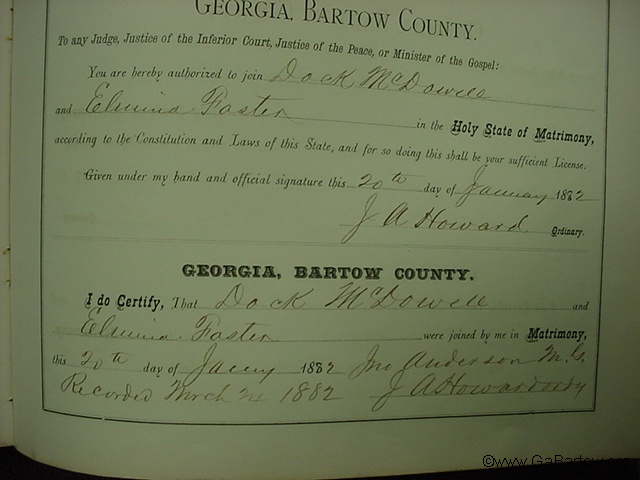 GEORGIA, BARTOW COUNTY.
To any Judge, Justice of the Inferior Court, Justice of the Peace, or Minister of the Gospel:
You are hereby authorized to join Dock McDowell
and Elmina Foster in the Holy State of Matrimony,
according to the Constitution and Laws of this State, and for so doing this shall be your sufficient License.
Given under my hand and official signature this 20th day of January 1882
J A Howard Ordinary.
GEORGIA, BARTOW COUNTY.
I do Certify, That Dock McDowell and
Elmina Foster were joined by me in Matrimony,
this 20th day of Jany 1882 Jno Anderson M.G.
Recorded March 1882 J A Howard ordy
©www.GaBartow.com